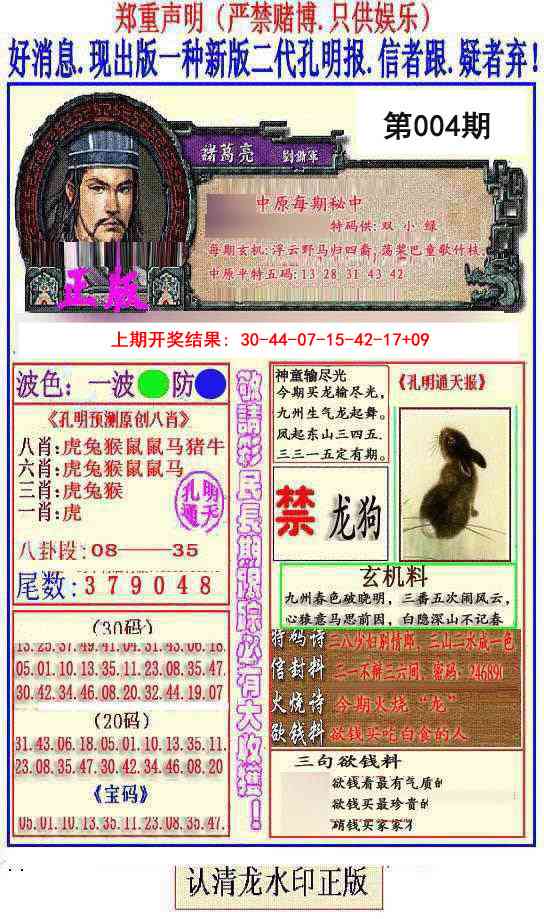 郑重声明（严禁赌博.只供娱乐）
好消息.现出版一种新版二代孔明报.信者跟.疑者弃!
第004期
諸葛亮
中原每期秘中
特码供:双 小 绿
每期玄机:浮云野马归四裔,荡桨巴童歌竹枝.
中原平特五码:13 28 31 43 42
正版
上期开奖结果: 30-44-07-15-42-17+09
波色: 一波 防
《孔明预测原创八肖》
八肖:虎兔猴鼠鼠马猪牛
六肖:虎兔猴鼠鼠马
三肖:虎兔猴
一肖:虎
孔明
通天
八卦段:08——35
尾数:379048
(30码)
13.25.37.49.41.04.31.43.06.18.
05.01.10.13.35.11.23.08.35.47
30.42.34.46.08.20.32.44.19.07
(20码)
31.43.06.18.05.01.10.13.35.11.
23.08.35.47.30.42.34.46.08.20
《宝码》
05.01.10.13.35.11.23.08.35.47.
敬請彩民長期跟踪必有大收獲！
神童输尽光
今期买龙输尽光,
九州生气龙起舞。
凤起东山三四五.
三三一五定有期。
《孔明通天报》
禁 龙狗
玄机料
九州春色破晓明，三番五次闹风云,
心猿意马思前因，白隐深山不记春
特码诗 三八少妇别情郎，三山二水成一色
信封料 三一不辞三六间，密码：24689
火烧诗 今期火烧“龙”
欲钱料 欲钱买吃白食的人
三句欲钱料
欲钱看最有气质的
欲钱买最珍贵的
钱买家家才
认清龙水印正版